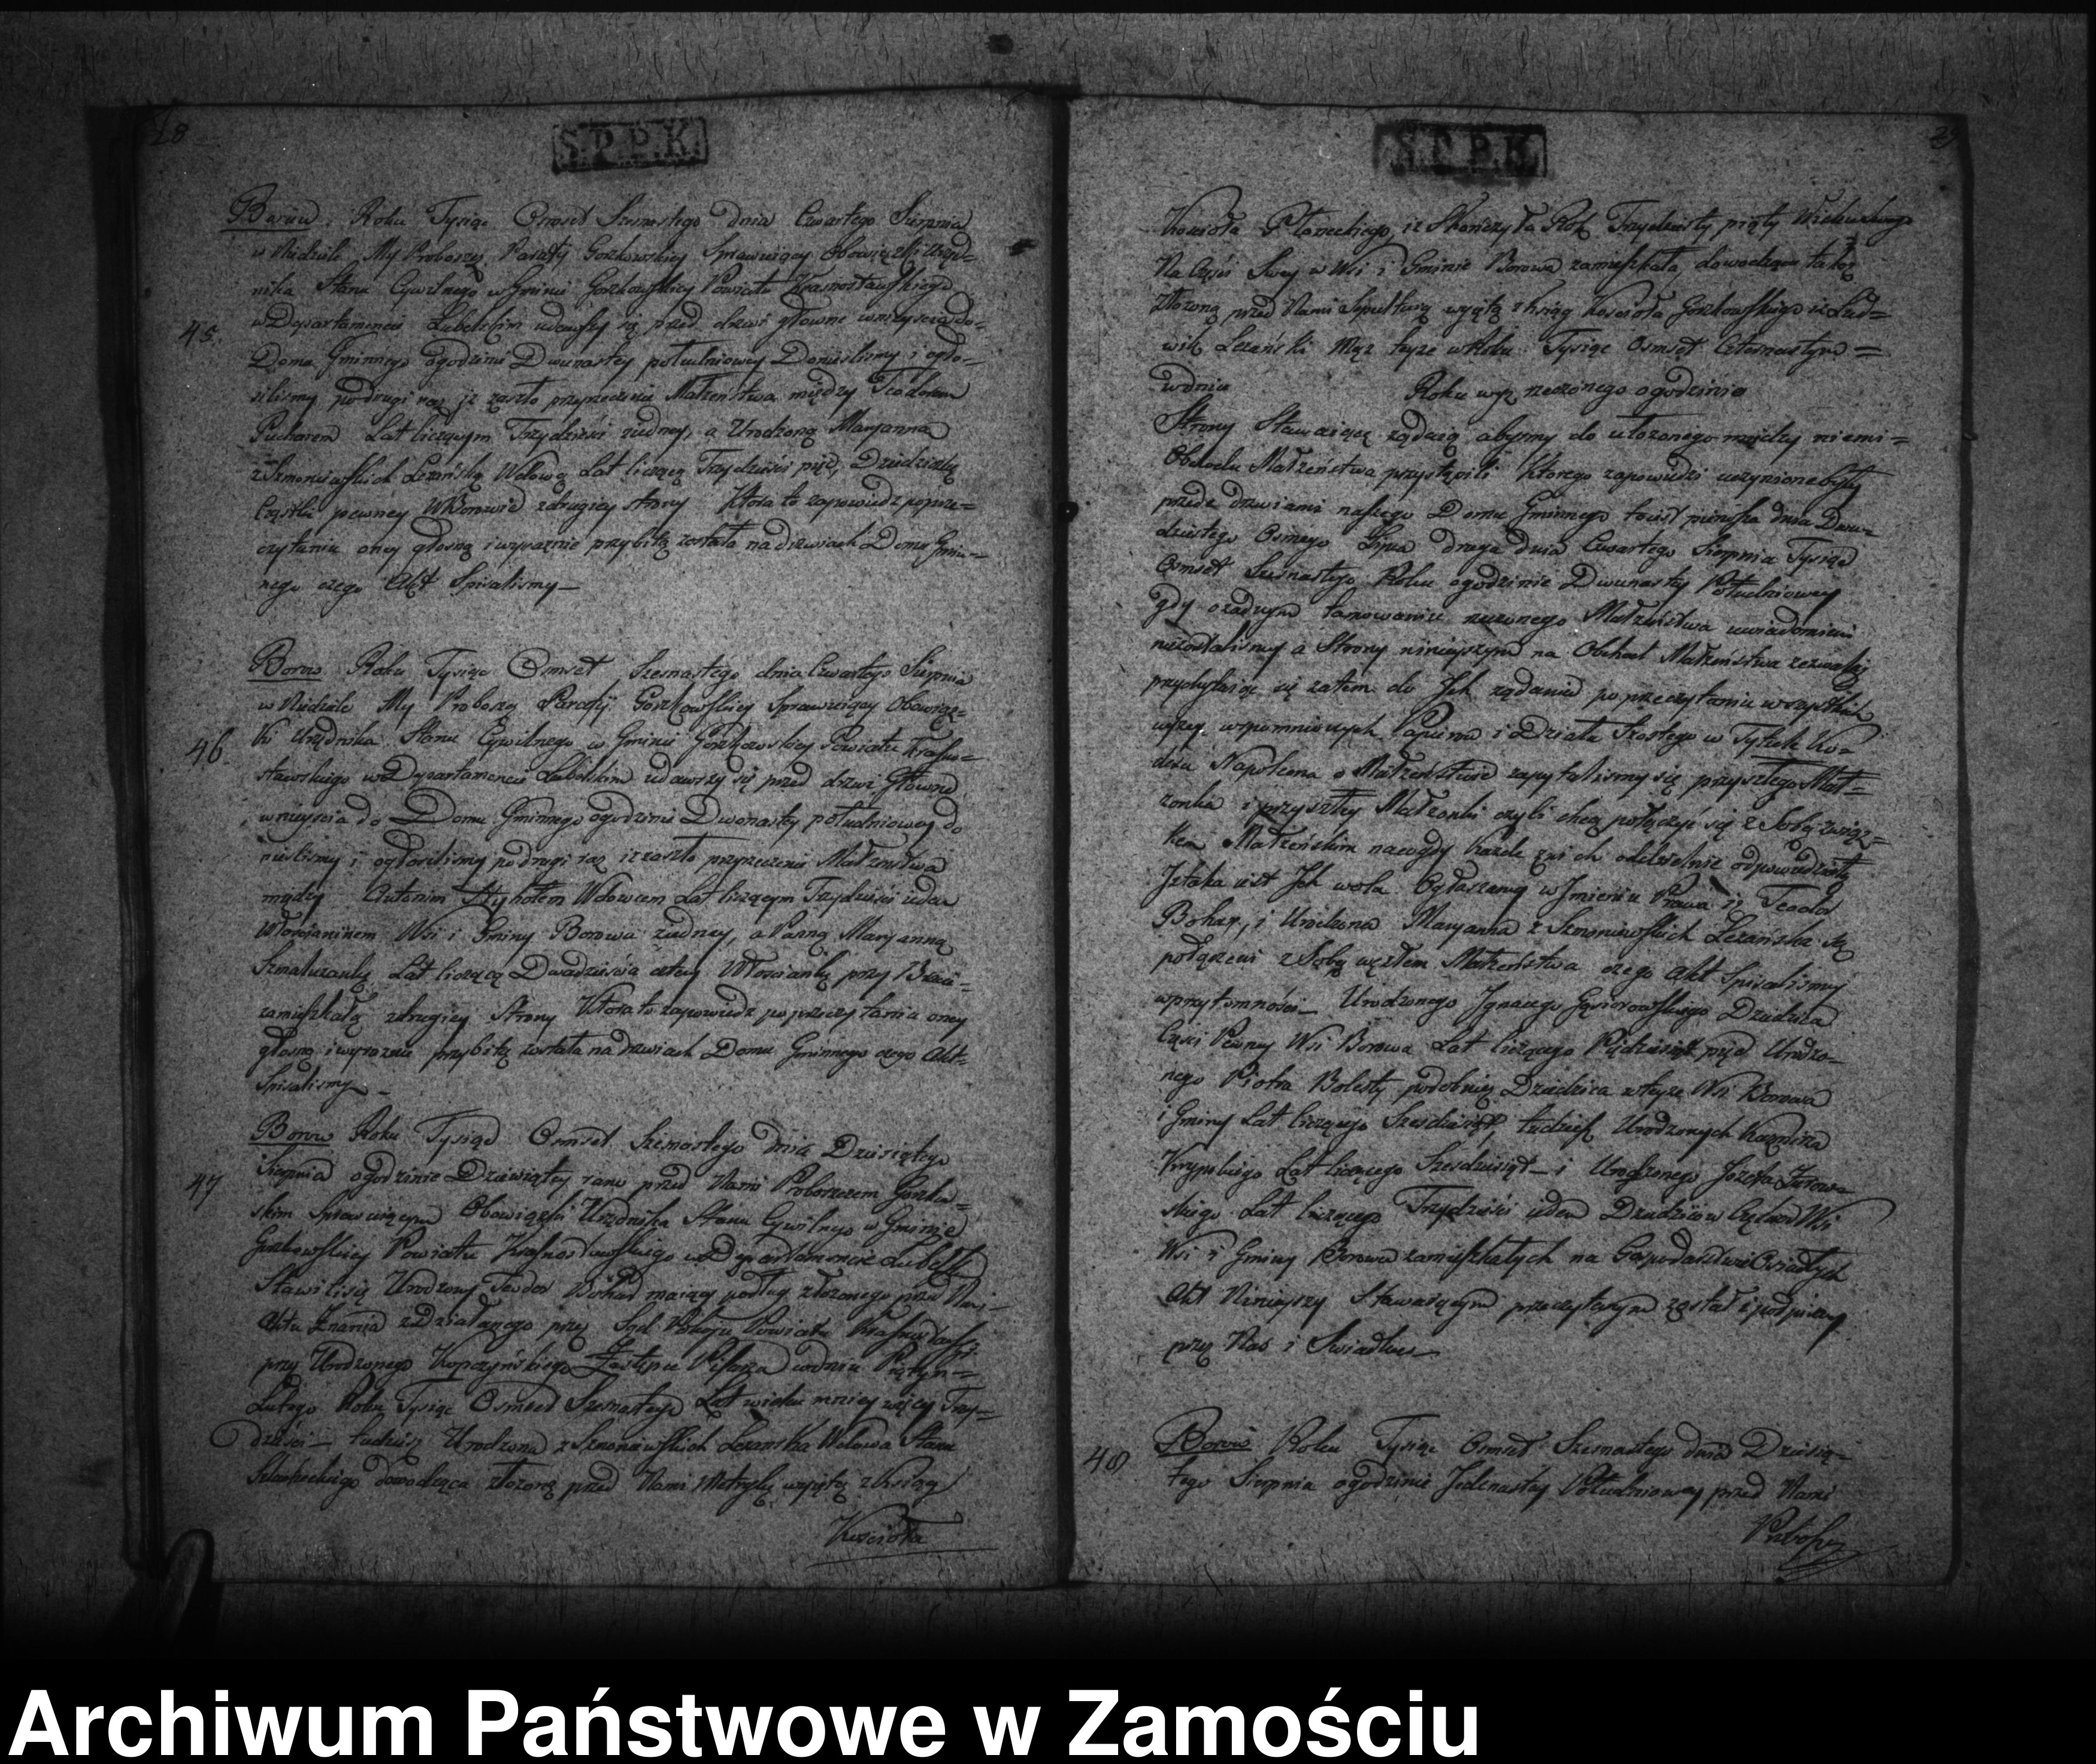 28
S.P.P.K.
Borów Roku Tysiąc Osmset Szesnastego dnia Czwartego Sierpnia
w Niedziele My Proboszcz Parafij Gorzkowskiey Sprawuiący Obowiązki Urzęd=
nika Stanu Cywilnego w Gminie Gorzkowskiey Powiatu Krasnostawskiego
45.
w Departamencie Lubelskim udawszy się przed drzwi głowne wniyscia do=
Domu Gminnego ogodzinie Dwunastey południowey Donieslismy i ogło=
silismy podrugi raz iż zaszło przyrzeczenie Małżenstwa między Teodorem
Lat liczącym Trzydziesci a Urodzoną Maryanną
z Szmoniewskich Leżańską Wdową Lat liczącą Trzydziesci pięć, Dziedziczką
Cząstki pewney w Borowie zdrugiey strony Ktora to zapowiedz poprze=
czytaniu oney głosno i wyraznie przybitą została na drzwiach Domu Gmin=
nego czego Akt Spisalismy—
Borow Roku Tysiąc Osmset Szesnastego dnia Czwartego Sierpnia
w Niedziele My Proboszcz Parafij Gorzkowskiey Sprawuiący Obowiąz=
46.
ki Urzędnika Stanu Cywilnego w Gminie Gorzkowskiey Powiatu Krasno=
stawskiego w Departamencie Lubelskim udawszy się przed drzwi Głowne
wniyscia do Domu Gminnego ogodzinie Dwunastey południowey do
nieslismy i ogłosilismy podrugi raz iż zaszło przyrzeczenie Małżenstwa
między Antonim Wdowcem Lat liczącym Trzydziesci ieden
Włoscianinem Wsi i Gminy Borowa a Panną Maryanną
Lat liczącą Dwadziescia cztery Włoscianką przy
zamięszkałą zdrugiey Strony Ktora to zapowiedz poprzeczytaniu oney
głosno i wyraznie przybitą została na drzwiach Domu Gminnego czego Akt=
Spisalismy—
Borow Roku Tysiąc Osmset Szesnastego dnia Dziesiątego
47
Sierpnia ogodzinie Dziewiątey rano przed Nami Proboszczem Gorzkow=
skim Sprawuiącym Obowiązki Urzędnika Stanu Cywilnego w Gminie
Gorzkowskiey Powiatu Krasnostawskiego w Departamencie Lubelsk
Stawili się Urodzony Teodor maiący podług złożonego przed Nami
Aktu Znania zdziałanego przez Sąd Pokoju Powiatu
przez Urodzonego Kopczyńskiego Zastępcę Pisarza w dniu Piątym=
Lutego Roku Tysiąc Osmset Szesnastego Lat wieku mniey więcey Trzy=
dziesci— tudzież Urodzona z Szmoniewskich Leżanska Wdowa Stanu
Szlacheckiego dowodząca złożoną przed Nami Metryką wyiętą z Ksiąg
Koscioła
29
S.P.P.K.
Koscioła Płoneckiego, iż Skonczyła Rok Trzydziesty piąty
Na Części Swey w Wsi i Gminie Borowa zamięszkała, dowodząca także
złożoną przed Nami Sepulturą wyiętą z ksiąg Koscioła Gorzkowskiego iż Lud=
wik Leżański Mąż teyże w Roku Tysiąc Osmset Czternastym=
w dniu Roku wyż rzeczonego ogodzinie
Strony Stawaiące żądaią abysmy do ułożonego między niemi=
Obchodu Małżeństwa przystąpili Ktorego zapowiedzi uczynione były
przede drzwiami naszego Domu Gminnego to iest pierwsza dnia Dwu=
dziestego Osmego Lipca druga dnia Czwartego Sierpnia Tysiąc
Osmset Szesnastego Roku ogodzinie Dwunastey Południowey
gdy ożadnym tamowaniu rzeczonego Małżeństwa uwiadomieni
niezostalismy a Strony niniejszym na Obchod Małżeństwa zezwalaią
przychylaiąc się zatem do Ich żądania po przeczytaniu wszystkich
wyżey wspomnionych Papierow i Działu Szostego w Tytule Ko=
dexu Napoleona o Małżeństwie zapytalismy się przyszłego Mał=
żonka i przyszłey Małżonki czyli chcą połączyć się z Sobą związ=
kiem Małżeńskim na co gdy każde z nich oddzielnie odpowiedziało
Iż taka iest Ich wola Ogłaszamy w Imieniu Prawa iż Teodor
i Urodzona Maryanna z Szmoniewskich Leżańska są
połączeni z Sobą węzłem Małżeństwa czego Akt Spisalismy
w przytomności— Urodzonego Ignacego Gąsiorowskiego Dziedzica
Części Pewney Wsi Borowa Lat liczącego Pięćdziesiąt pięć Urodzo=
nego Piotra Bolesty podobnież Dziedzica w teyże Wsi Borowa
i Gminy Lat liczącego Szesćdziesiąt, tudzież Urodzonych Kazmirza
Krypskiego Lat liczącego Szesdziesiąt— i Urodzonego Jozefa
skiego Lat liczącego Trzydziesci ieden Dziedzicow Wsi
Wsi i Gminy Borowa zamięszkałych na Gospodarstwie Osiadłych
Akt Ninieyszy Stawaiącym przeczytanym został i podpisany
przez Nas i Swiadkow—
48
Borow Roku Tysiąc Osmset Szesnastego dnia Dziesią=
tego Sierpnia ogodzinie Jedenastey Południowey przed Nami
Probosz
Archiwum Państwowe w Zamościu